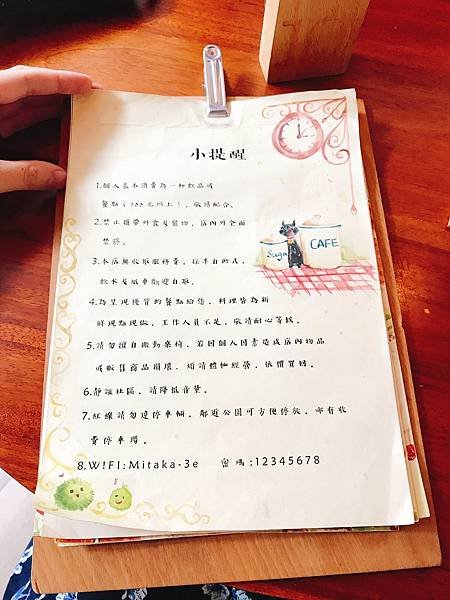 小提醒
1.個人基本消費為一杯飲品或
餐點(100元以上)，敬請配合。
2.禁止攜帶外食及寵物，店內外全面
禁菸。
3.本店無收取服務費，採半自助式，
飲水及紙巾歡迎自取。
4.為呈現優質的餐點給您，料理皆為新
鮮現點現做，工作人員不足，敬請耐心等候。
5.請勿擅自搬動桌椅，若因個人因素造成店內物品
或販售商品損壞，煩請體恤經營，依價買回。
6.靜謐社區，請降低音量。
7.紅線請勿違停車輛，鄰近公園可方便停放，亦有收
費停車場。
8.W!FI:Mitaka-3e 密碼:12345678
Suga
CAFE